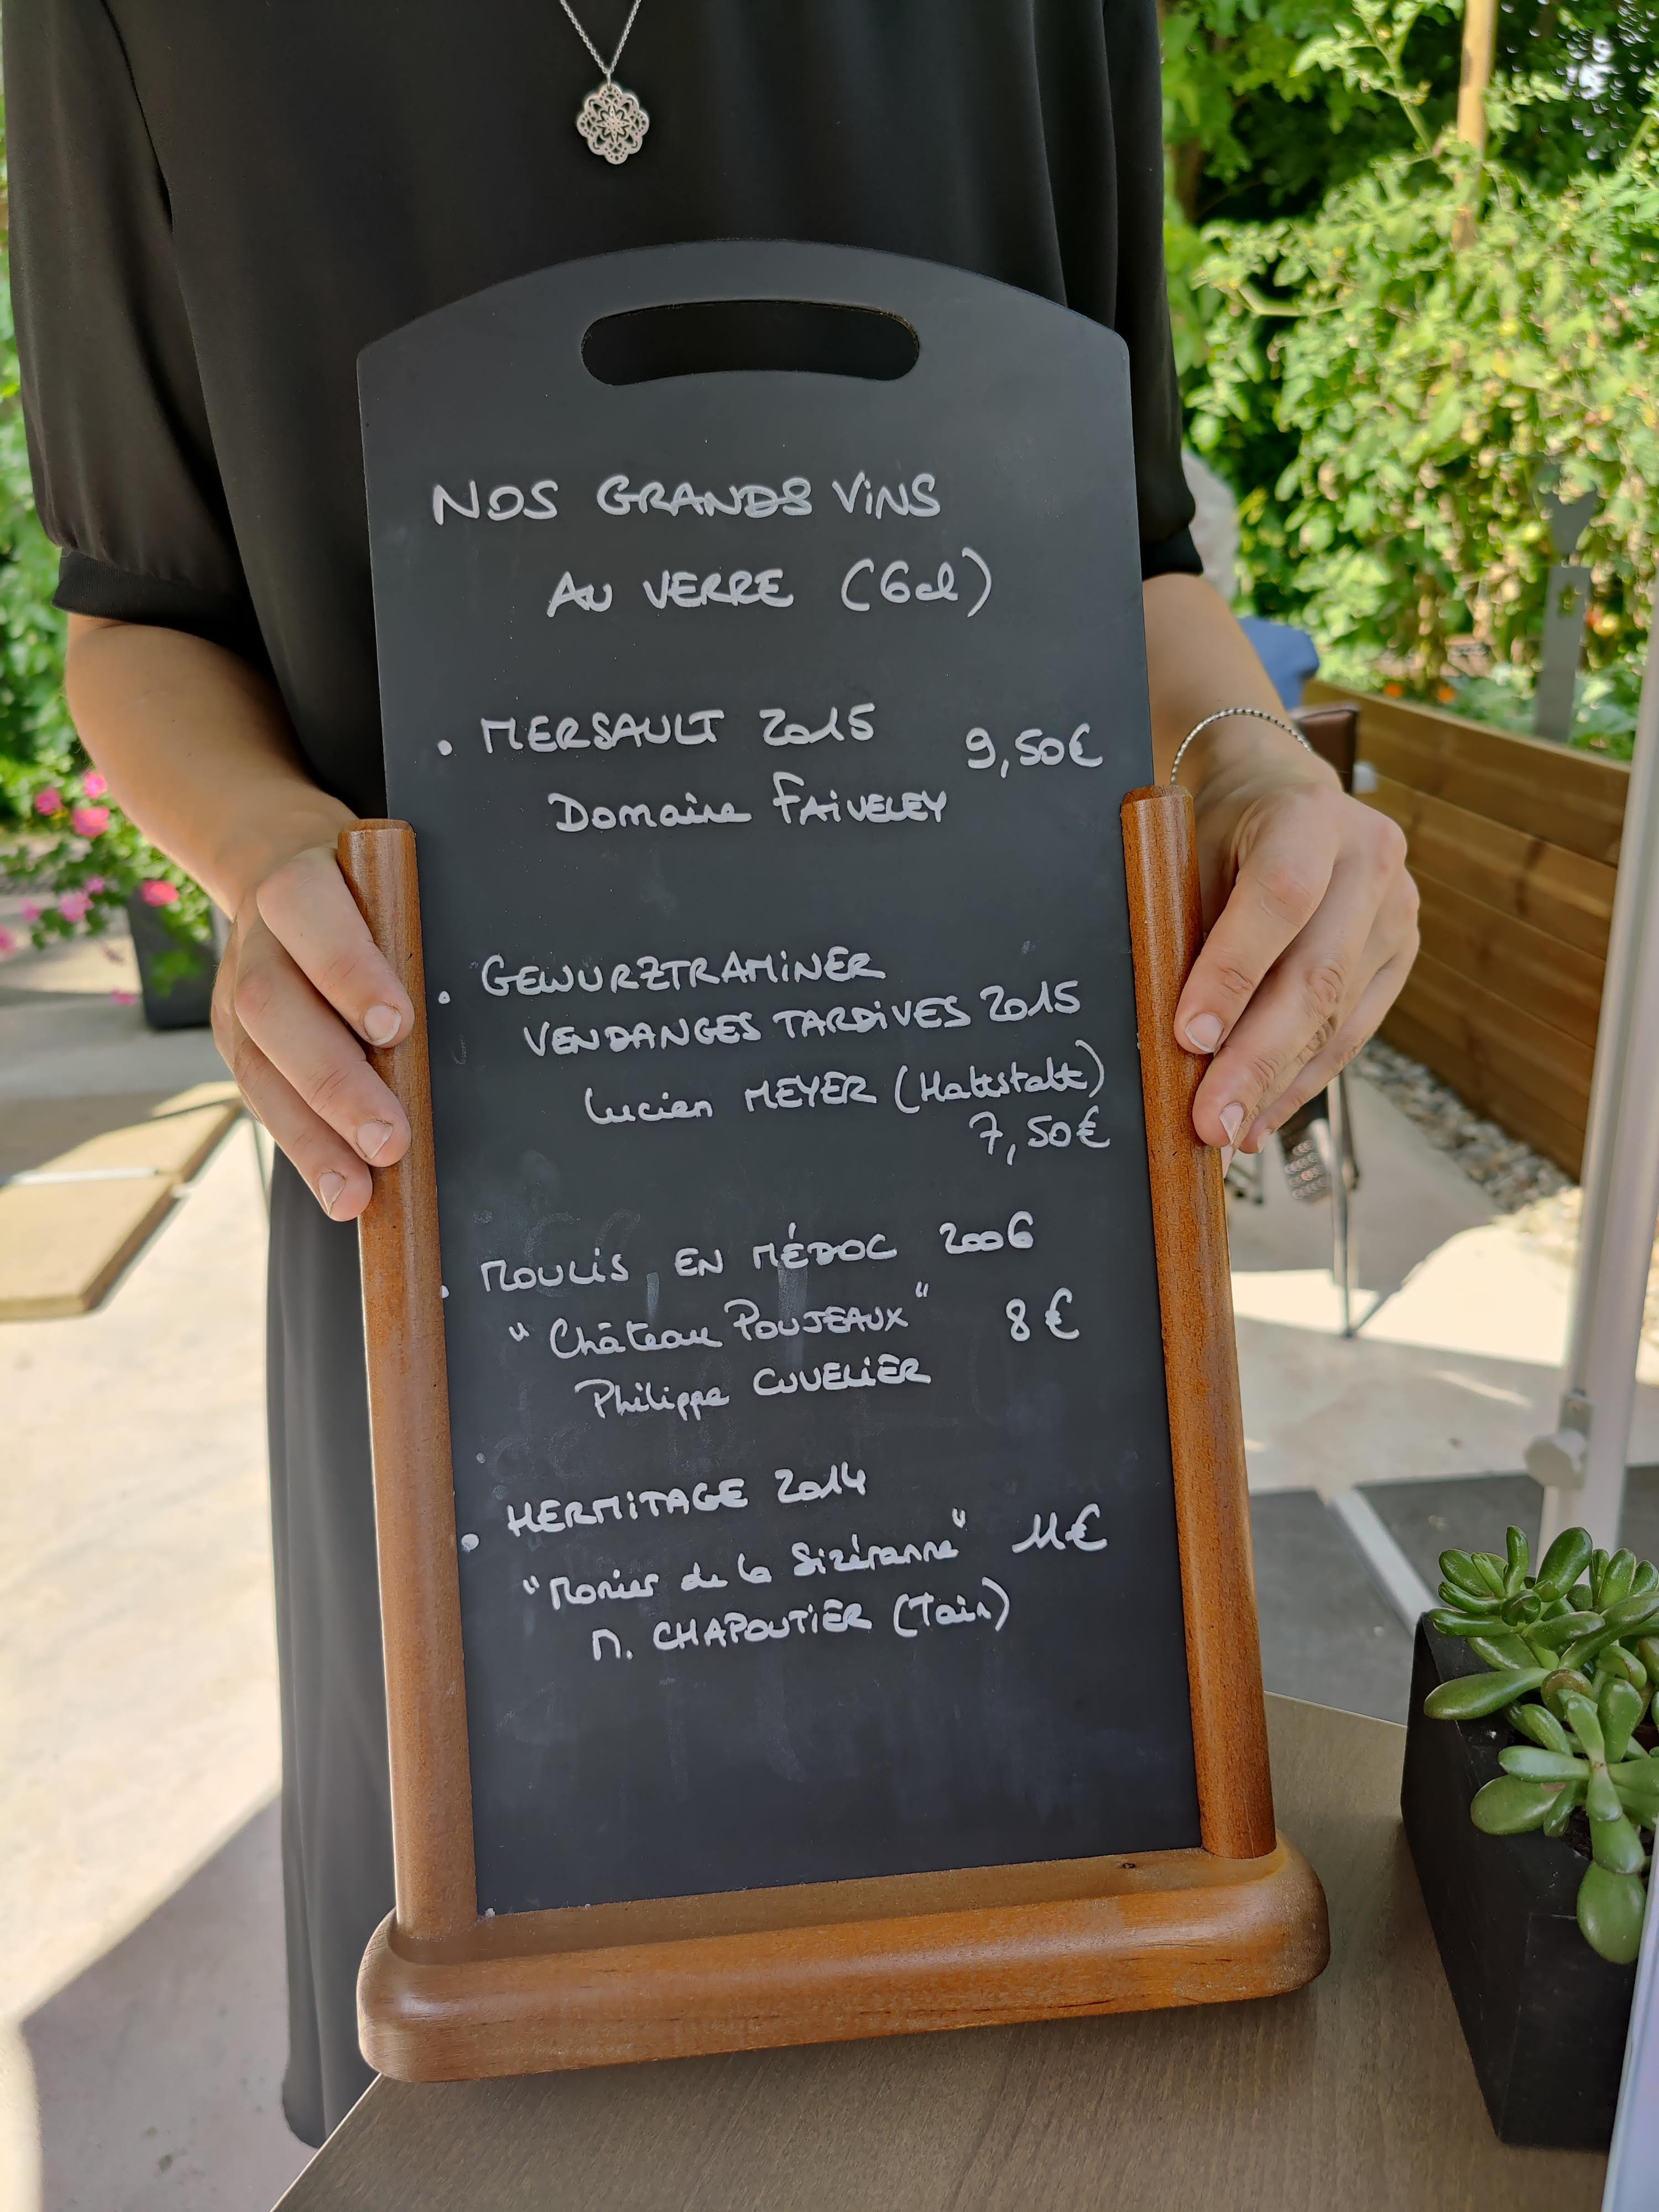 NOS GRANDS VINS
AU VERRE (6cl)
• MERSAULT 2015 9,50€
Domaine FAIVELEY
• GEWURZTRAMINER
VENDANGES TARDIVES 2015
Lucien MEYER (Hattstatt)
7,50€
• MOULIS EN MÉDOC 2006
"Château POUJEAUX" 8€
Philippe CUVELIER
• HERMITAGE 2014
"Monier de la Sizéranne" 11€
M. CHAPOUTIER (Tain)